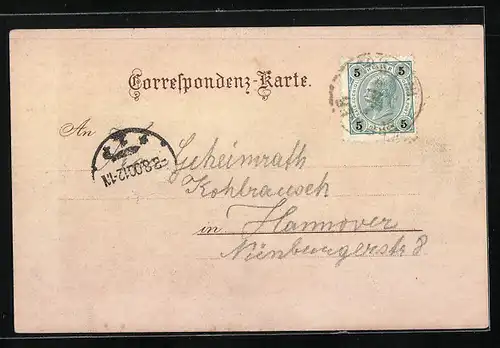 Correspondenz-Karte.
5 5
5 5
An
8.8.00.12-1N
Geheimrath
Kohlrausch
in Hannover
Nienburgerstr 8